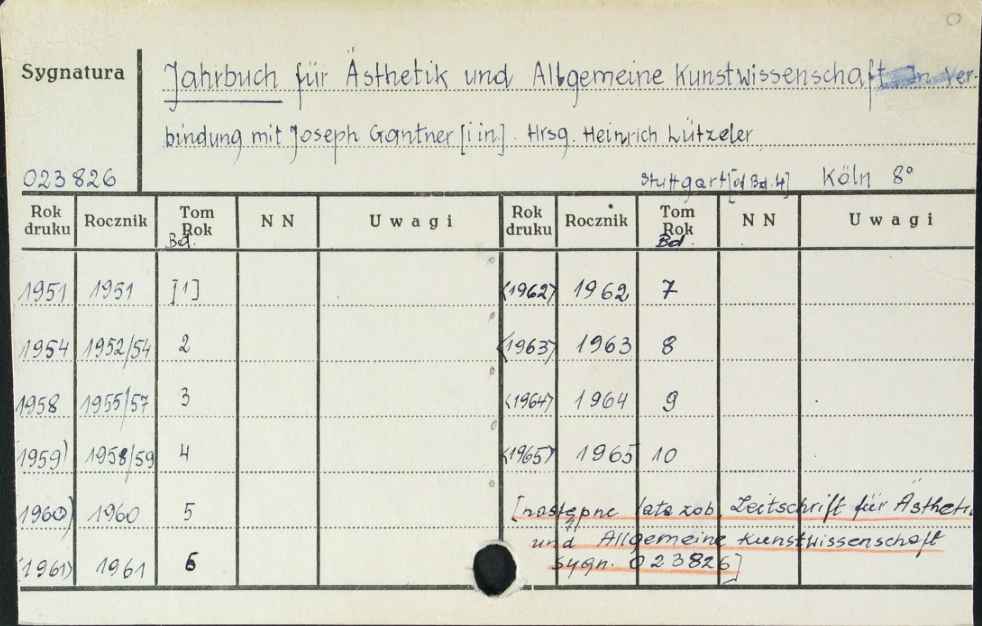 Sygnatura
Jahrbuch für Ästhetik und Allgemeine Kunstwissenschaft. In Ver-
bindung mit Joseph Gantner [i in]. Hrsg. Heinrich Lützeler
023826
Stuttgart [od Bd. 4] Köln 8°
Rok druku Rocznik Tom Rok Bd. NN Uwagi Rok druku Rocznik Tom Rok Bd NN Uwagi
1951 1951 [1] <1962> 1962 7
1954 1952/54 2 <1963> 1963 8
1958 1955/57 3 <1964> 1964 9
1959> 1958/59 4 <1965> 1965 10
1960> 1960 5 [następne lata zob Zeitschrift für Ästheti
und Allgemeine Kunstwissenschaft
<1961> 1961 6 sygn. 023826]